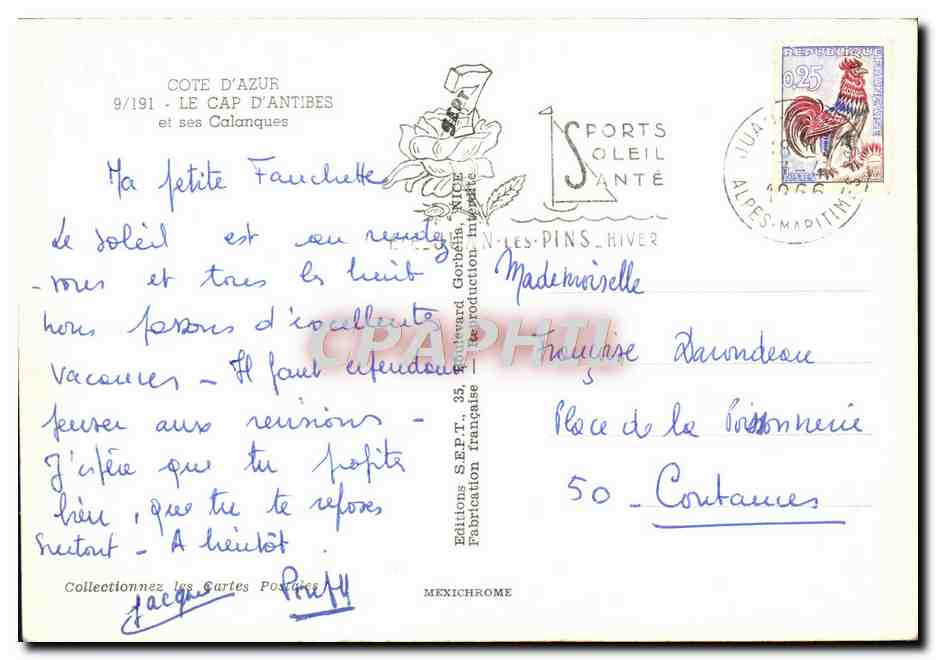 COTE D'AZUR
9/191 - LE CAP D'ANTIBES
et ses Calanques
Ma petite Fanchette
Le soleil est au rendez
-vous et tous les huit
nous passons d'excellentes
vacances - Il faut cependant
penser aux révisions -
J'espère que tu profites
bien, que tu te reposes
surtout - A bientôt.
Jacques
Collectionnez les Cartes Postales
MEXICHROME
Editions S.E.P.T., 35, Boulevard Gorbella, NICE
Fabrication française - Reproduction interdite
SEPT
SPORTS
SOLEIL
SANTÉ
JUAN-LES-PINS_HIVER
REPUBLIQUE FRANÇAISE
0,25
POSTES
JUAN
18
1966
ALPES-MARITIMES
Mademoiselle
Françoise Darondeau
Place de la Poissonnerie
50 - Coutances
CPAPHIL